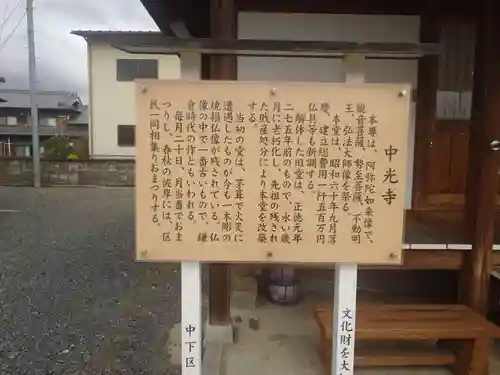 中光寺
本尊は、阿弥陀如来像で、
観音菩薩、勢至菩薩、不動明
王、弘法大師像を祭る。
本堂は、昭和六十年九月落
慶、建立総費用一阡五百万円
仏具等も新調する。
解体した旧堂は、正徳元年
二七五年前のもので、永い歳
月に老朽化し、先祖の残され
た財産処分により本堂を改築
する。
当初の本堂は、茅葺で火災に
遭遇したものか今も一木彫の
焼損仏像が残されている。仏
像の中で一番古いもので、鎌
倉時代の作ともいわれる。
毎月二十日、月当番でおま
つりし、春秋の彼岸には、区
民一同相集りおまつりする。
中下区
文化財を大